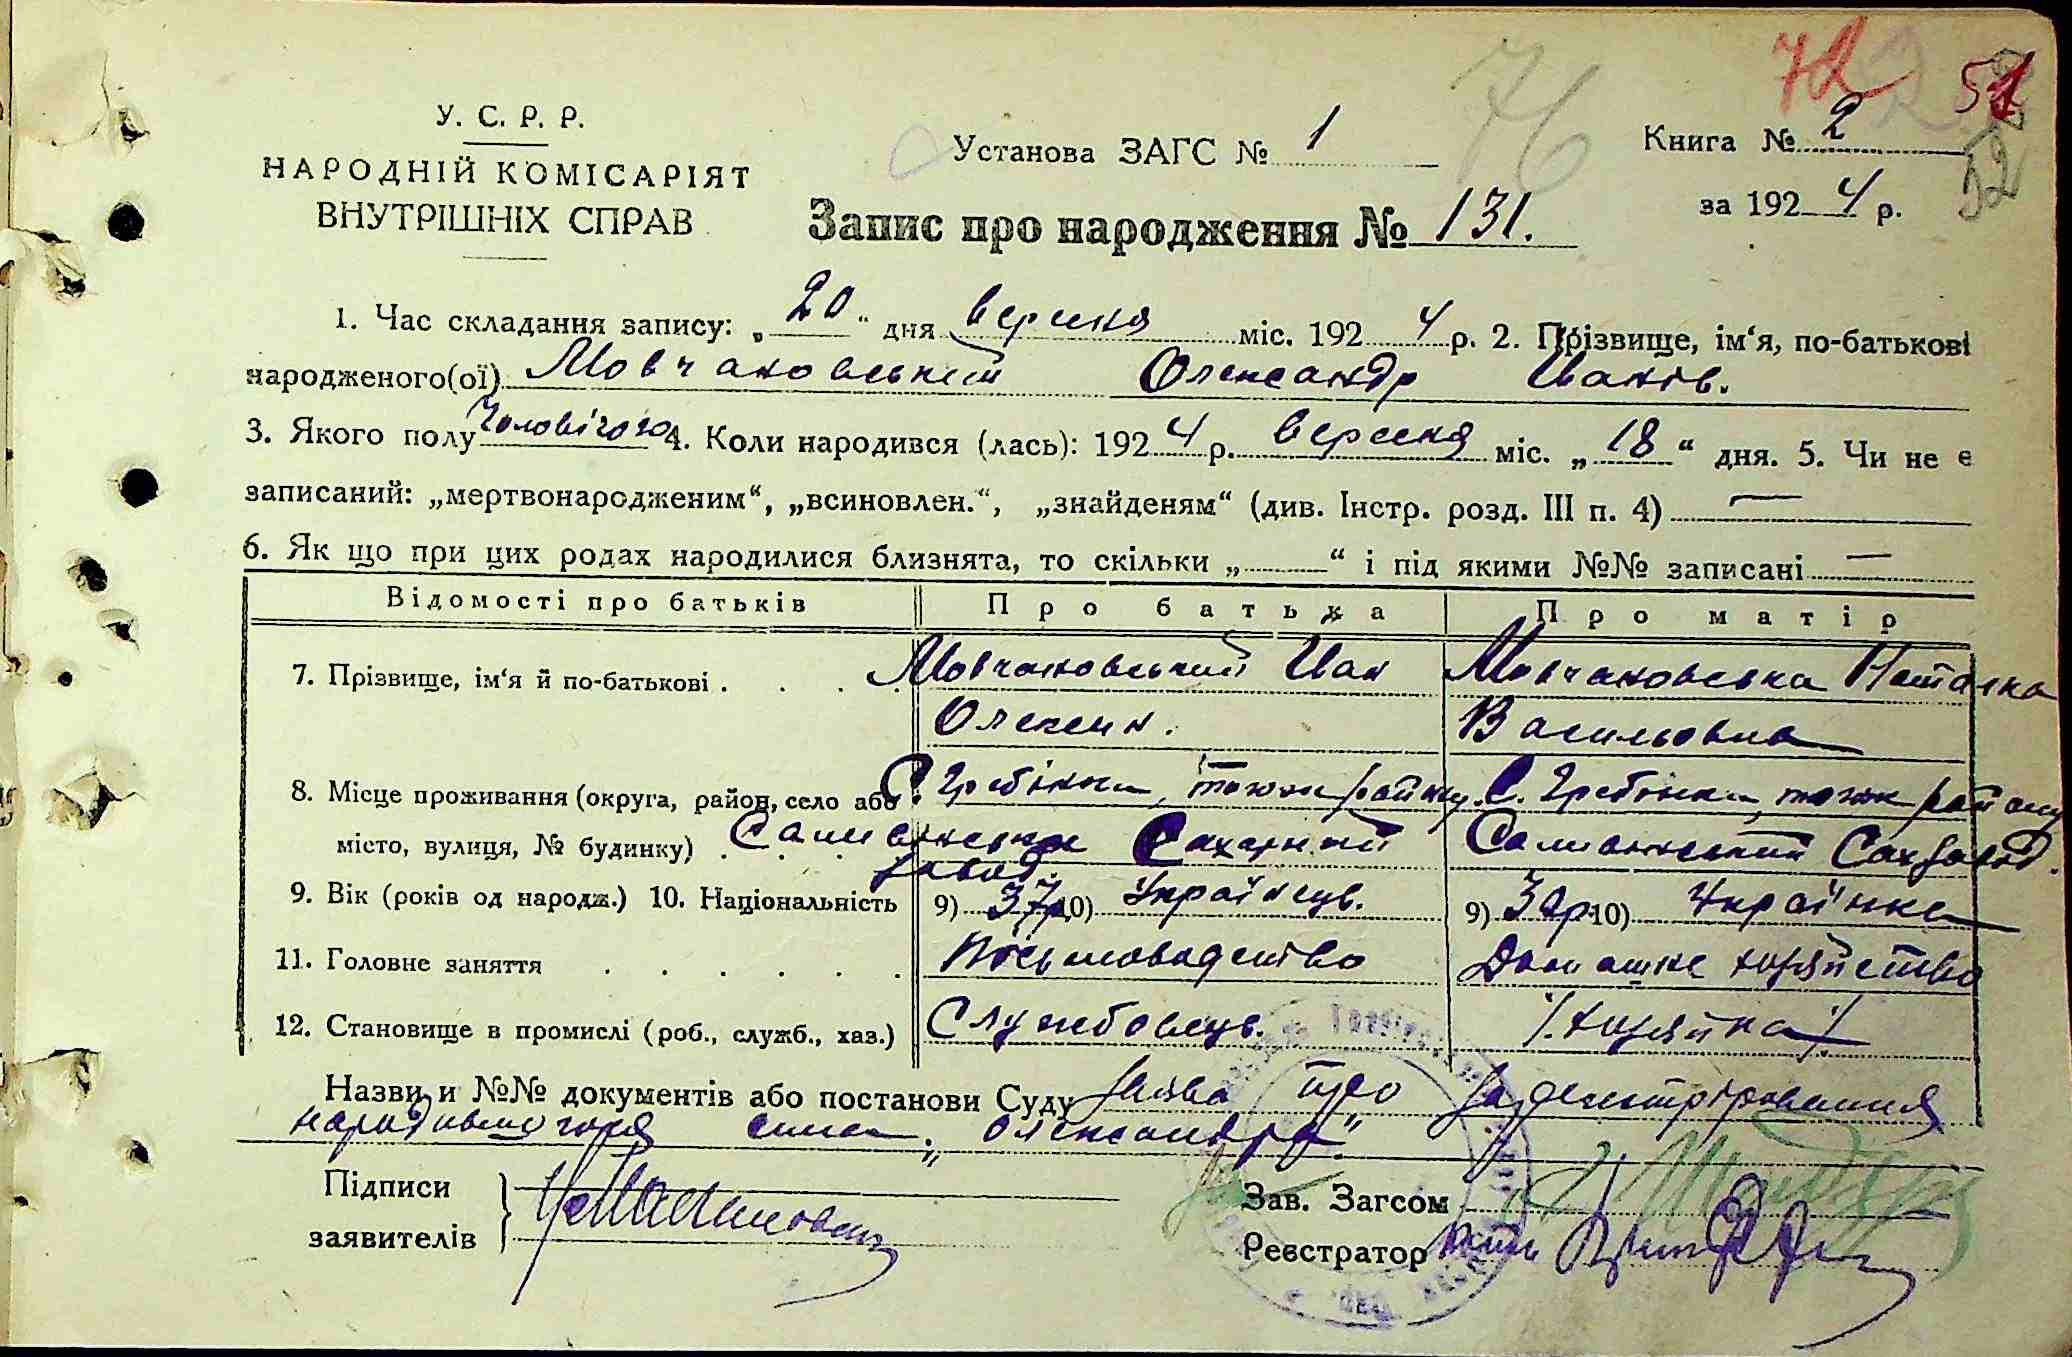 72 51
76 52
У. С. Р. Р.
НАРОДНІЙ КОМІСАРІЯТ
ВНУТРІШНІХ СПРАВ
Установа ЗАГС № 1
Книга № 2
за 1924 р.
Запис про народження № 131.
1. Час складання запису: „20“ дня вересня міс. 1924 р. 2. Прізвище, ім‘я, по-батькові
народженого(ої) Мовчановський Олександр Иванів.
3. Якого полу Чоловічого 4. Коли народився (лась): 1924 р. вересня міс. „18“ дня. 5. Чи не є
записаний: „мертвонародженим“, „всиновлен.“, „знайденям“ (див. Інстр. розд. III п. 4) —
6. Як що при цих родах народилися близнята, то скільки „ “ і під якими №№ записані —
Відомості про батьків Про батька Про матір
7. Прізвище, ім‘я й по-батькові . . . Мовчановський Иван Мовчановська Наталка
Олексии. Васильовна
8. Місце проживання (округа, район, село або С. Гребінки, тож району. С. Гребінки, тож району
місто, вулиця, № будинку) . Саливонський Сахарний Саливонський Сахзавод.
завод.
9. Вік (років од народж.) 10. Національність 9) 37р 10) Українець. 9) 32р. 10) Українка
11. Головне заняття . . . . . . Письмоводство Домашнє хозяйство
12. Становище в промислі (роб., служб., хаз.) Службовець. /.хозяйка/.
Назви и №№ документів або постанови Суду Заява про
сина „Олександра“
Підписи
заявителів
Зав. Загсом
Реєстратор